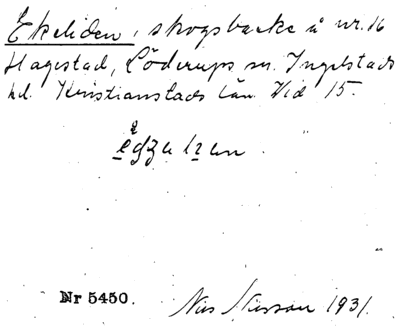 Ekeliden, skogsbacke å nr. 16
Hagestad, Löderups sn. Ingelstads
hd. Kristianstads län. Vid 15.
Nr 5450. Nils Nilsson 1931.